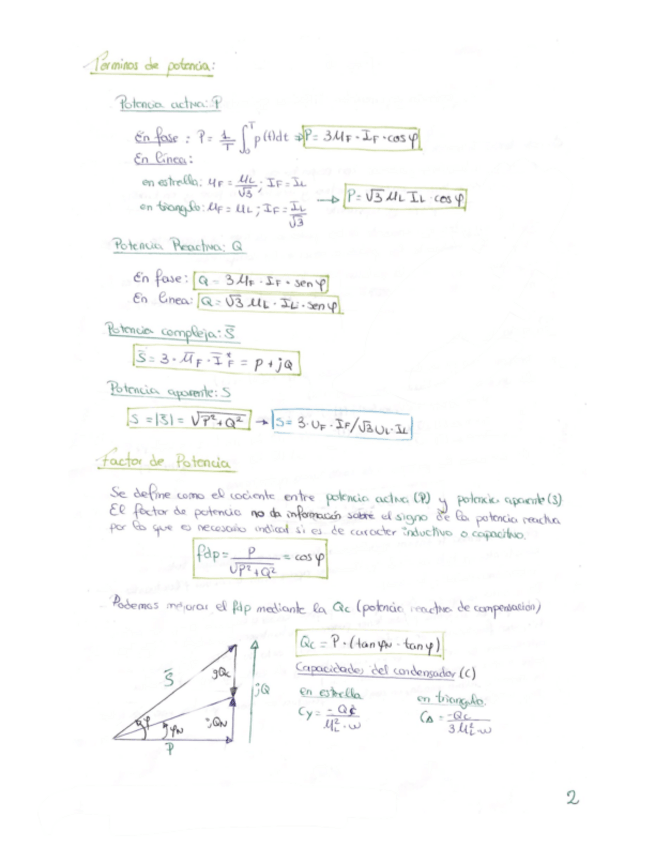 Términos de potencia:
Potencia activa: P
En fase: P = 1/T ∫₀ᵀ p(t)dt ⇒ P = 3 U_F · I_F · cos φ
En línea:
en estrella: U_F = U_L/√3 ; I_F = I_L
en triangulo: U_F = U_L ; I_F = I_L/√3
→ P = √3 U_L I_L · cos φ
Potencia Reactiva: Q
En fase: Q = 3 U_F · I_F · sen φ
En linea: Q = √3 U_L · I_L · sen φ
Potencia compleja: S̄
S̄ = 3 · Ū_F · Ī*_F = P + jQ
Potencia aparente: S
S = |S̄| = √(P² + Q²) → S = 3 · U_F · I_F / √3 U_L · I_L
Factor de Potencia
Se define como el cociente entre potencia activa (P) y potencia aparente (S)
El factor de potencia no da información sobre el signo de la potencia reactiva
por lo que es necesario indicar si es de caracter inductivo o capacitivo.
fdp = P/√(P² + Q²) = cos φ
Podemos mejorar el fdp mediante la Qc (potencia reactiva de compensacion)
Qc = P · (tan φ_N - tan φ)
Capacidades del condensador (C)
en estrella
C_Y = -Qc/(U_L² · w)
en triangulo
C_Δ = -Qc/(3 U_L² · w)
S̄
jQc
jQ
jQ_N
φ
φ_N
P
2